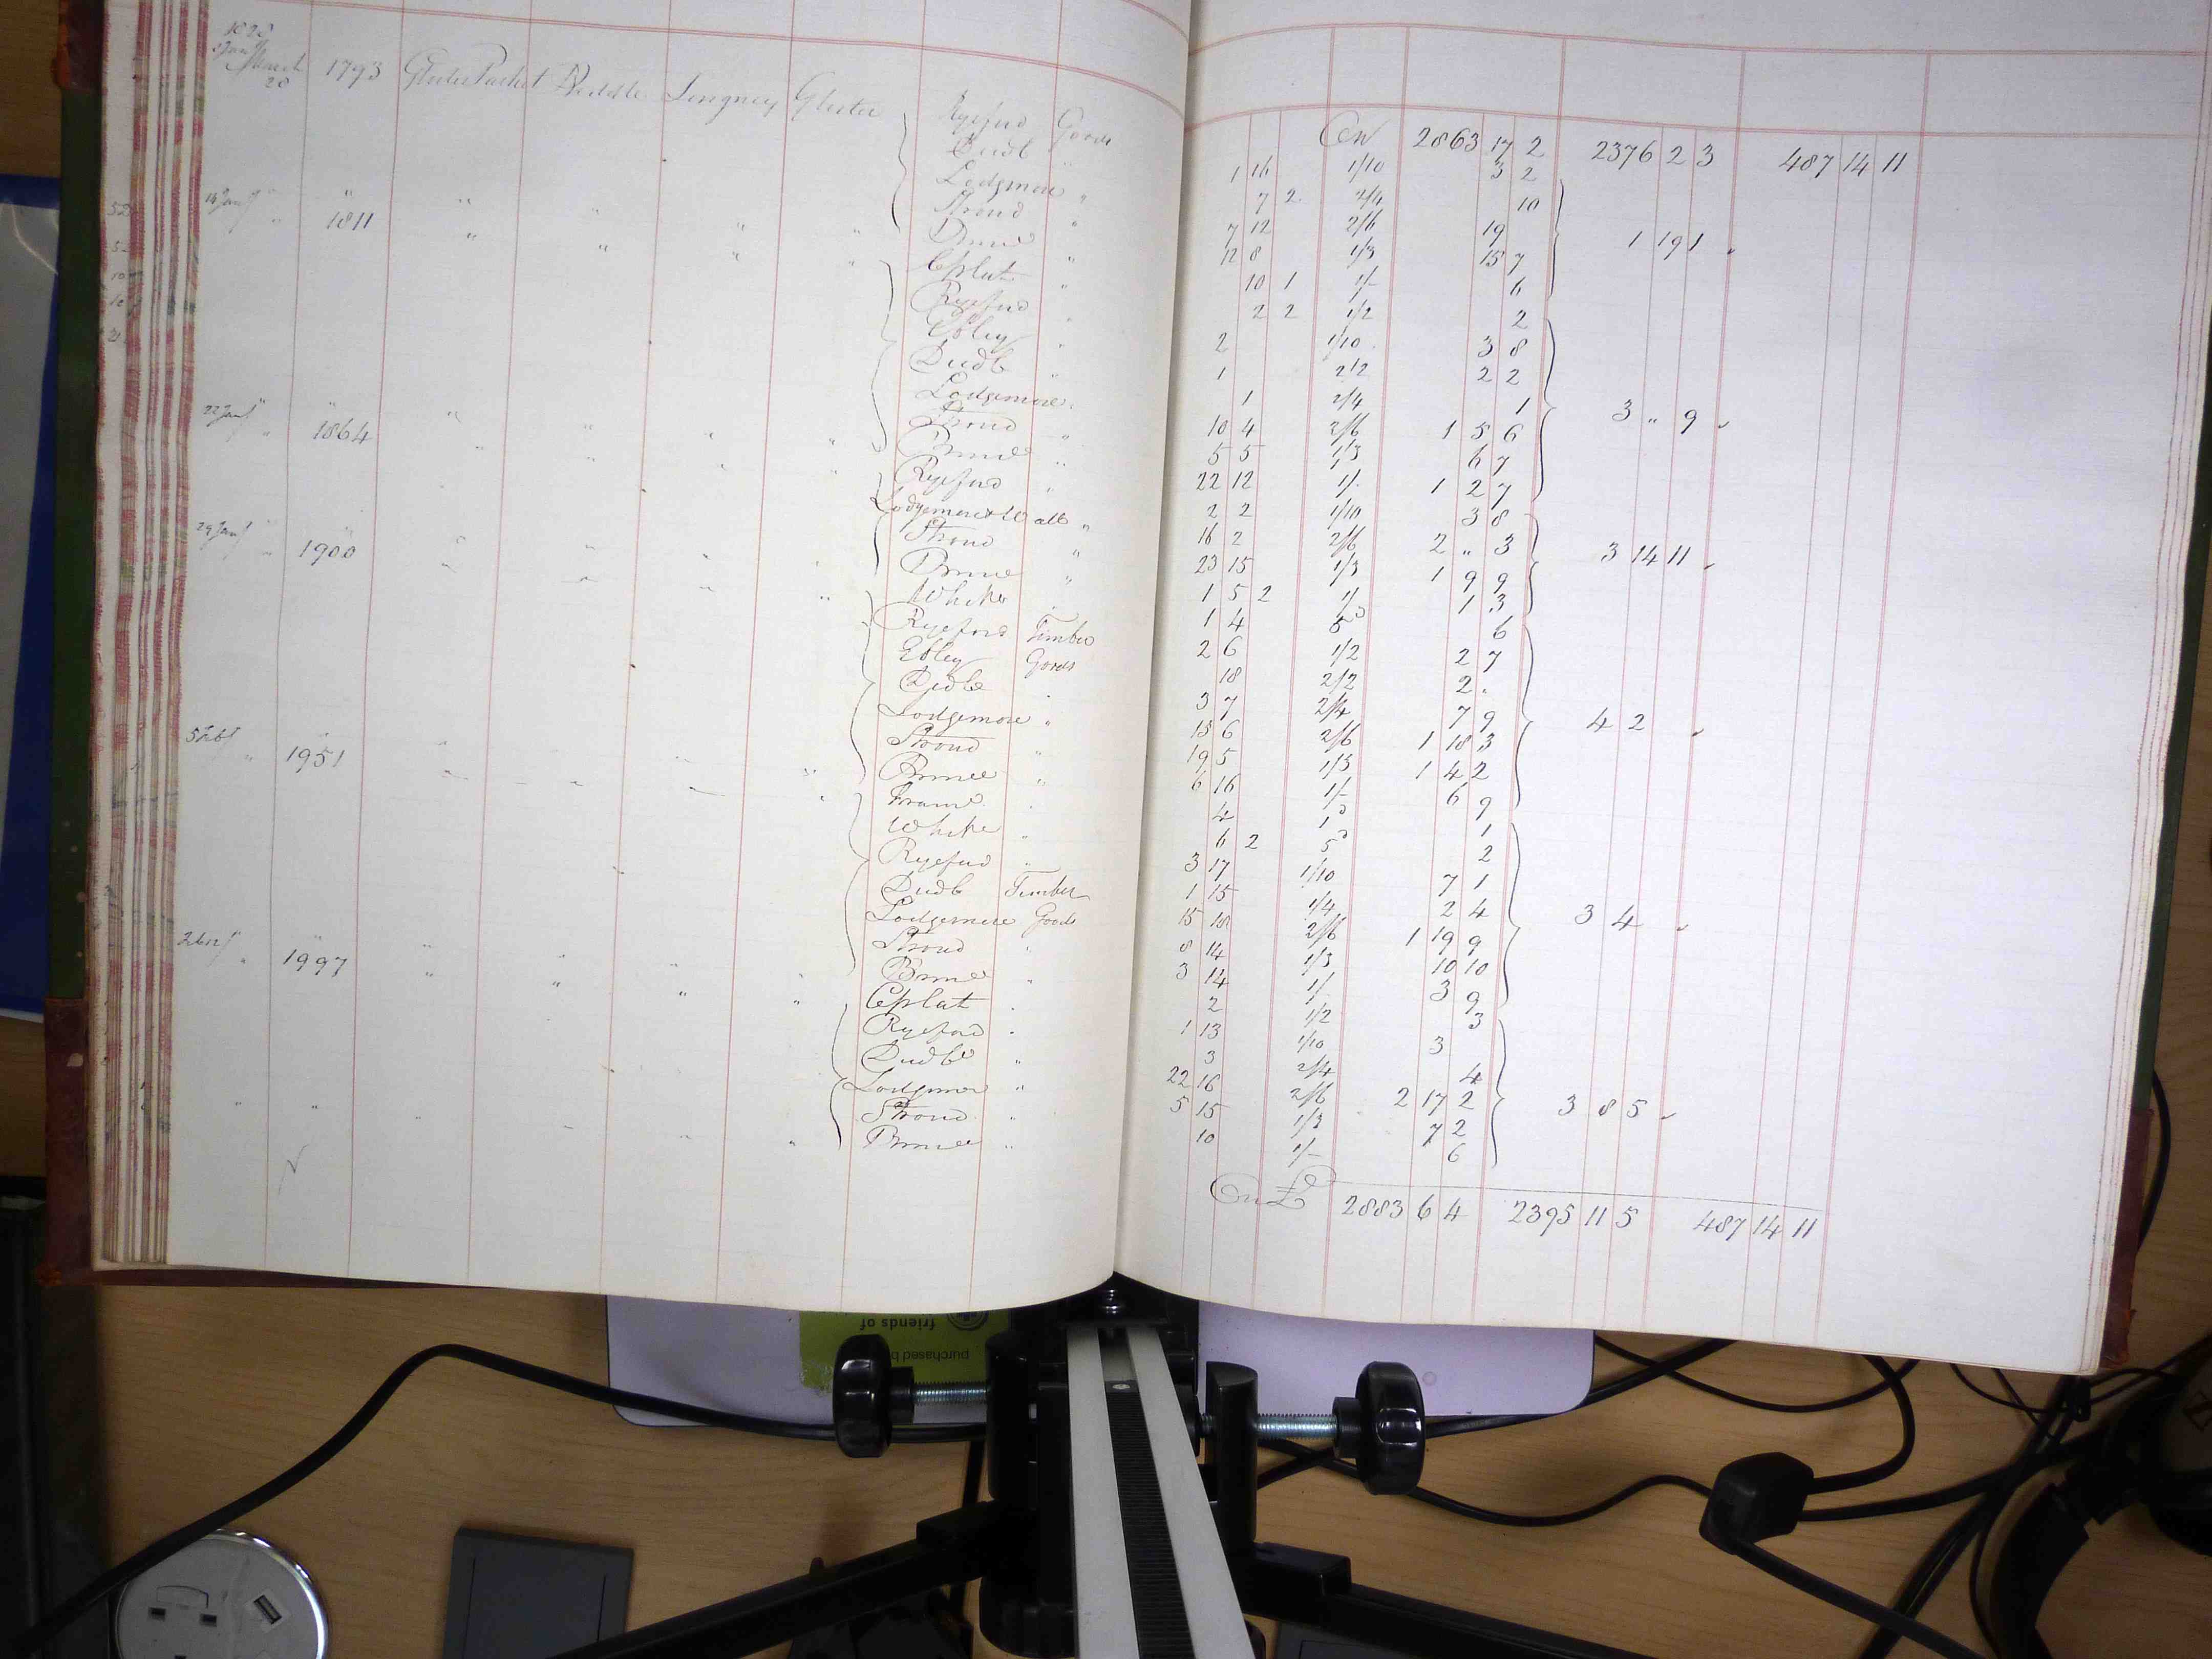 March
28 1793 Gloster Packet Longney Gloster Ryeford Goods Cn 2863 17 2 2376 2 3 487 14 11
Dudb " 1 16 1/10 3 2
Lodgemore " 7 2 2/4 10
Stroud " 7 12 2/6 19 1 19 1
" 1811 12 8 1/3 15 7
10 1 1/- 6
2 2 1/2 2
Ryeford " 2 1/10 3 8
Ebley " 1 2/2 2 2
Dudb " 1 2/4 1 3 " 9
Lodgemore " 10 4 2/6 1 5 6
Stroud " 5 5 1/3 6 7
" 1864 22 12 1/- 1 2 7
Ryeford " 2 2 1/10 3 8
Lodgemore & Wallb " 16 2 2/6 2 " 3 3 14 11
Stroud " 23 15 1/3 1 9 9
" 1900 1 5 2 1/- 1 3
White 1 4 5d 6
Ryeford Timber 2 6 1/2 2 7
Ebley Goods 18 2/2 2
Dudb " 3 7 2/4 7 9 4 2
Lodgemore " 15 6 2/6 1 18 3
Stroud " 19 5 1/3 1 4 2
" 1951 6 16 1/- 6 9
4 1
White " 6 2 5d 2
Ryeford " 3 17 1/10 7 1
Dudb Timber 1 15 1/4 2 4 3 4
Lodgemore Goods 15 18 2/6 1 19 9
Stroud " 8 14 1/3 10 10
" 1997 3 14 1/- 3 9
2 1/2 3
Ryeford " 1 13 1/10 3
Dudb " 3 2/4 4
Lodgemore " 22 16 2/6 2 17 2 3 8 5
Stroud " 5 15 1/3 7 2
10 1/- 6
Cn £ 2883 6 4 2395 11 5 487 14 11
friends of
purchased b